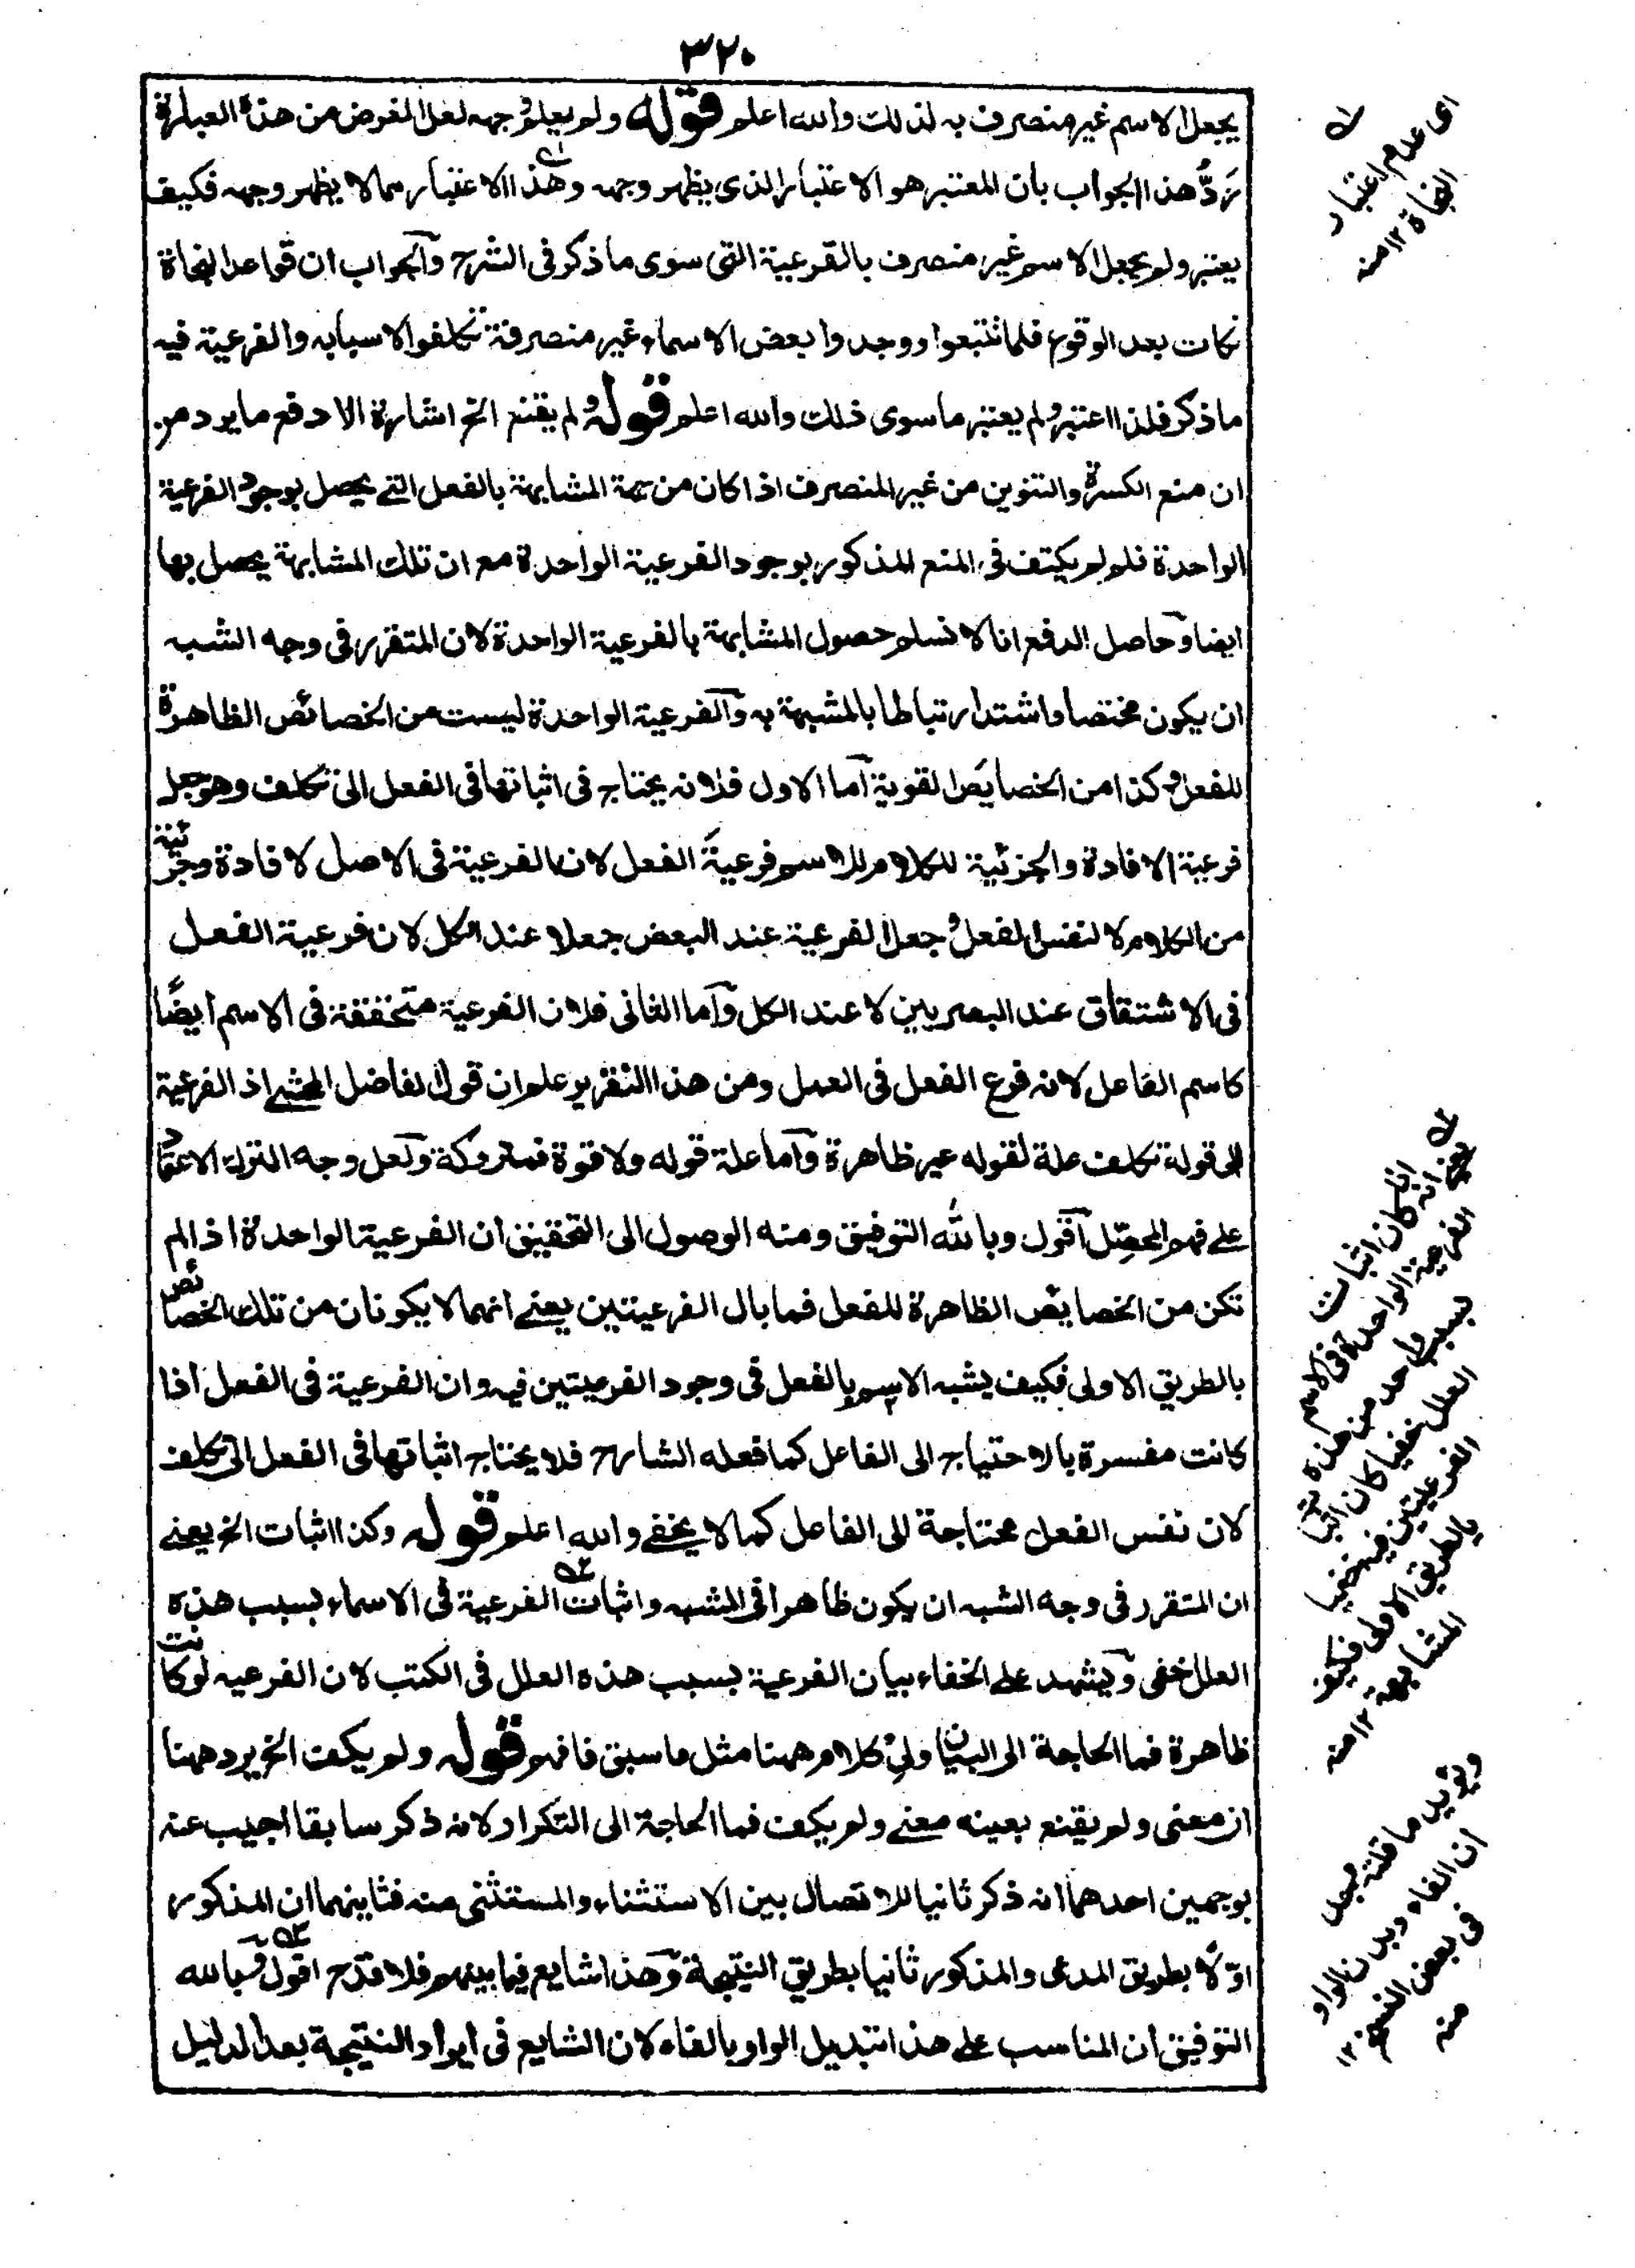 ٣٢٠
يجعل الاسم غير منصرف به لذلك والله اعلم قوله ولم يعلم وجهه لعل الغرض من هذه العبارة
رَدُّ هذا الجواب بان المعتبر هو الاعتبار الذى يظهر وجهه وهذا الاعتبار مما لا يظهر وجهه فكيف
يعتبر ولم يجعل الاسم غير منصرف بالفرعية التى سوى ما ذكر فى الشرح والجواب ان قواعد النحاة
نكات بعد الوقوع فلما تتبعوا ووجدوا بعض الاسماء غير منصرفة تكلفوا لاسبابه والفرعية فيه
ما ذكر فلذا اعتبر ولم يعتبر ما سوى ذلك والله اعلم قوله ولم يقنع الخ اشارة الا دفع ما يرد من
ان منع الكسرة والتنوين من غير المنصرف اذا كان من جهة المشابهة بالفعل التے يحصل بوجود الفرعية
الواحدة فلم لم يكتف فى المنع المذكور بوجود الفرعية الواحدة مع ان تلك المشابهة يحصل بها
ايضا وحاصل الدفع انا لا نسلم حصول المشابهة بالفرعية الواحدة لان المتقرر فى وجه الشبه
ان يكون مختصا واشتد ارتباطا بالمشبهة به والفرعية الواحدة ليست من الخصائص الظاهرة
للفعل وكذا من الخصايص القوية اما الاول فلانه يحتاج فى اثباتها فى الفعل الى تكلف وهو جعل
فرعية الافادة والجزئية للكلام للاسم فرعية الفعل لان الفرعية فى الاصل لافادة وجزئية
من الكلام لا لنفس الفعل وجعل الفرعية عند البعض جعلا عند الكل لان فرعية الفعل
فى الاشتقاق عند البصريين لا عند الكل واما الثانى فلان الفرعية متحققة فى الاسم ايضًا
كاسم الفاعل لانه فرع الفعل فى العمل ومن هذا التقرير علم ان قول الفاضل المحشے اذ الفرعية
الى قوله تكلف علة لقوله غير ظاهرة واما علة قوله ولا قوة فمتروكة ولعل وجه الترك الاعتماد
علے فهم المحصّل اقول وبالله التوفيق ومنه الوصول الى التحقيق ان الفرعية الواحدة اذا لم
تكن من الخصايص الظاهرة للفعل فما بال الفرعيتين يعنے انهما لا يكونان من تلك الخصائص
بالطريق الاولى فكيف يشبه الاسم بالفعل فى وجود الفرعيتين فيه وان الفرعية فى الفعل اذا
كانت مفسرة بالاحتياج الى الفاعل كما فعله الشارح فلا يحتاج اثباتها فى الفعل الى تكلف
لان نفس الفعل محتاجة الى الفاعل كما لا يخفے والله اعلم قوله وكذا اثبات الخ يعنے
ان المتقرر فى وجه الشبه ان يكون ظاهرا فى المشبه واثبات الفرعية فى الاسماء بسبب هذه
العلل خفى ويشهد علے الخفاء بيان الفرعية بسبب هذه العلل فى الكتب لان الفرعيه لو كانت
ظاهرة فما الحاجة الى البيان ولى كلام ههنا مثل ما سبق فافهم قوله ولم يكف الخ يرد ههنا
ان معنى ولم يقنع بعينه معنے ولم يكف فما الحاجة الى التكرار لانه ذكر سابقا اجيب عنه
بوجهين احدهما انه ذكر ثانيا للاتصال بين الاستثناء والمستثنى منه فثانيهما ان المذكور
اوّلا بطريق المدعى والمذكور ثانيا بطريق النتيجة وهذا شايع فيما بينهم فلا قدح اقول وبالله
التوفيق ان المناسب علے هذا تبديل الواو بالفاء لان الشايع فى ايراد النتيجة بعد الدليل
اى عدم اعتبار
النحاة ١٢ منه
يعنے انه
اذا كان اثبات
الفرعية الواحدة فى الاسم
بسبب واحد من هذه
العلل خفيا كان اثبات
الفرعيتين فيه خفيا
بالطريق الاولى فكيف
المشابهة ١٢ منه
ويؤيد ما قلته
ان الفاء وبدل الواو
فى بعض النسخ ١٢
منه